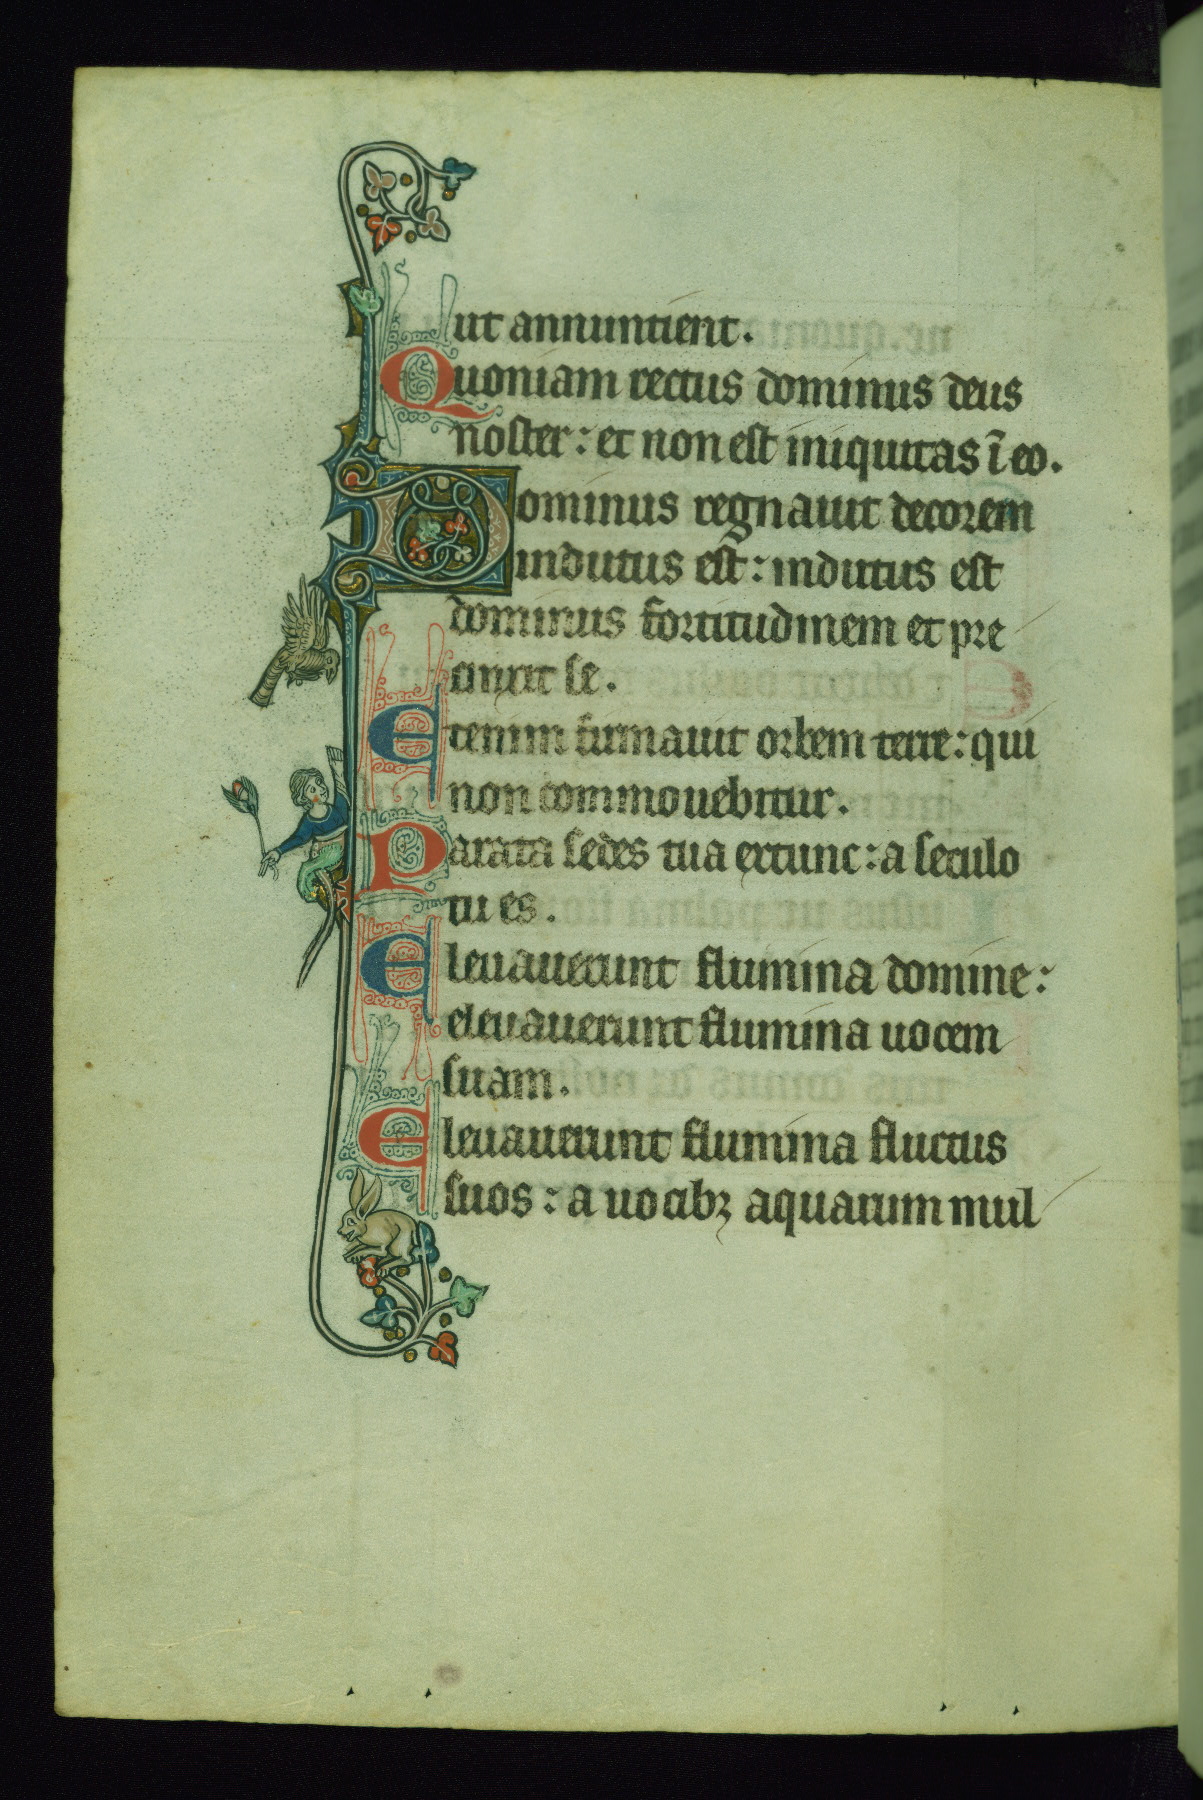 ut annuntient.
Quoniam rectus dominus deus
noster: et non est iniquitas ī eo.
Dominus regnauit decorem
indutus est: indutus est
dominus fortitudinem et pre
cinxit se.
Etenim firmauit orbem terre: qui
non commouebitur.
Parata sedes tua extunc: a seculo
tu es.
Eleuauerunt flumina domine:
eleuauerunt flumina uocem
suam.
Eleuauerunt flumina fluctus
suos: a uocibꝫ aquarum mul